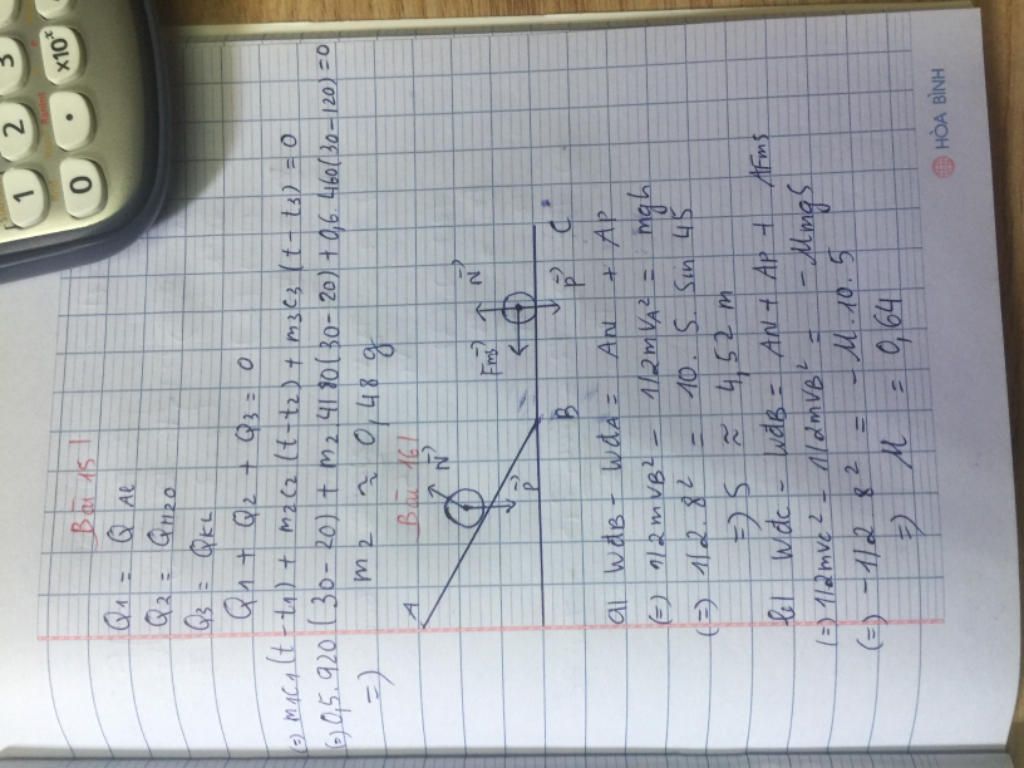 Bài 15|
Q1 = Q Al
Q2 = QH2O
Q3 = QKL
Q1 + Q2 + Q3 = 0
(=) m1c1(t - t1) + m2c2(t - t2) + m3c3(t - t3) = 0
(=) 0,5.920(30 - 20) + m2.4180(30 - 20) + 0,6.460(30 - 120) = 0
=) m2 ≈ 0,48 g
Bài 16|
A N→ P→ B Fms→ N→ P→ C
a| WdB - WdA = AN + AP
(=) 1/2mvB² - 1/2mvA² = mgh
(=) 1/2.8² = 10.S.sin 45
=) S ≈ 4,52 m
b| WdC - WdB = AN + AP + AFms
(=) 1/2mvc² - 1/2mvB² = - μmgS
(=) -1/2 8² = - μ.10.5
=) μ = 0,64
HÒA BÌNH
1 2 3
0 . x10ˣ